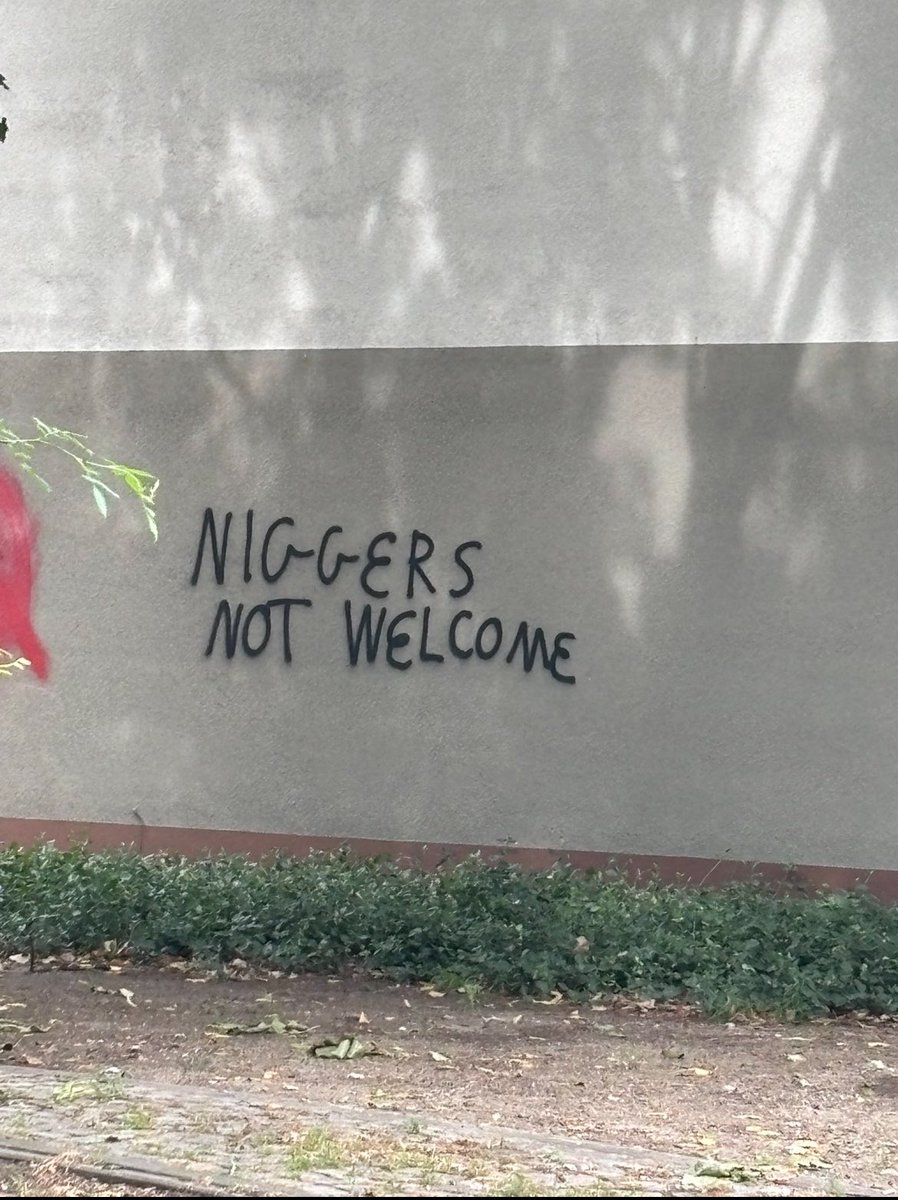 NIGGERS
NOT WELCOME